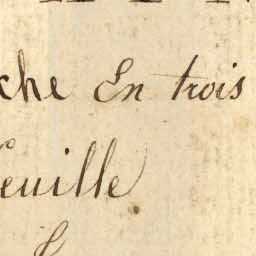 che En trois
euille